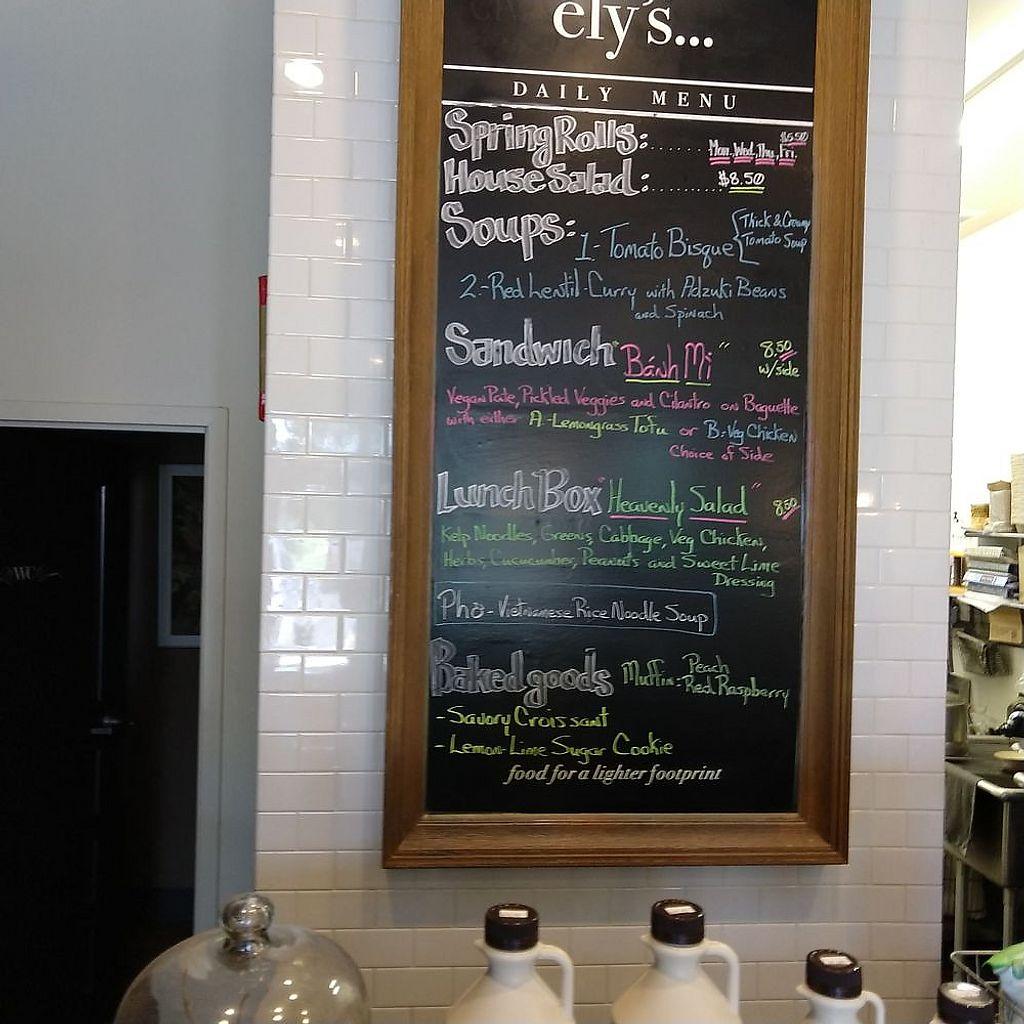 ely's...
DAILY MENU
Spring Rolls:....... Mon, Wed, Thu, Fri. $6.50
House Salad:......... $8.50
Soups: 1-Tomato Bisque { Thick & Creamy
Tomato Soup
2.-Red Lentil-Curry with Adzuki Beans
and Spinach
Sandwich "Bánh Mi" 8.50
w/side
Vegan Pate, Pickled Veggies and Cilantro on Baguette
with either A-Lemongrass Tofu or B-Veg Chicken
Choice of Side
Lunch Box "Heavenly Salad" 8.50
Kelp Noodles, Greens, Cabbage, Veg Chicken,
Herbs, Cucucumber, Peanuts and Sweet Lime
Dressing
Pho - Vietnamese Rice Noodle Soup
Baked goods Muffin: Peach
Red Raspberry
- Savory Croissant
- Lemon-Lime Sugar Cookie
food for a lighter footprint
WC